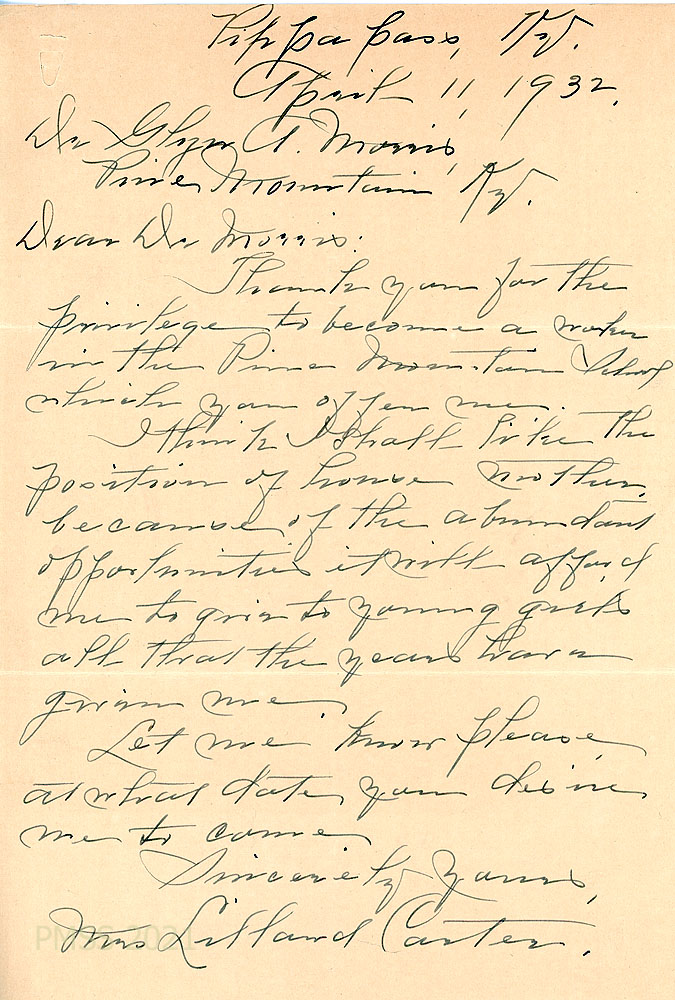 Pippa Pass, Ky.
April 11, 1932.
Dr Glyn A. Morris,
Pine Mountain Ky.
Dear Dr Morris:
Thank you for the
privilege to become a worker
in the Pine Mountain School
which you offer me.
I think I shall like the
position of house mother,
because of the abundant
opportunities it will afford
me to give to young girls
all that the years have
given me.
Let me know please,
at what date, you desire,
me to come,
Sincerely yours,
Mrs Lillard Carter.
PMSS 2021